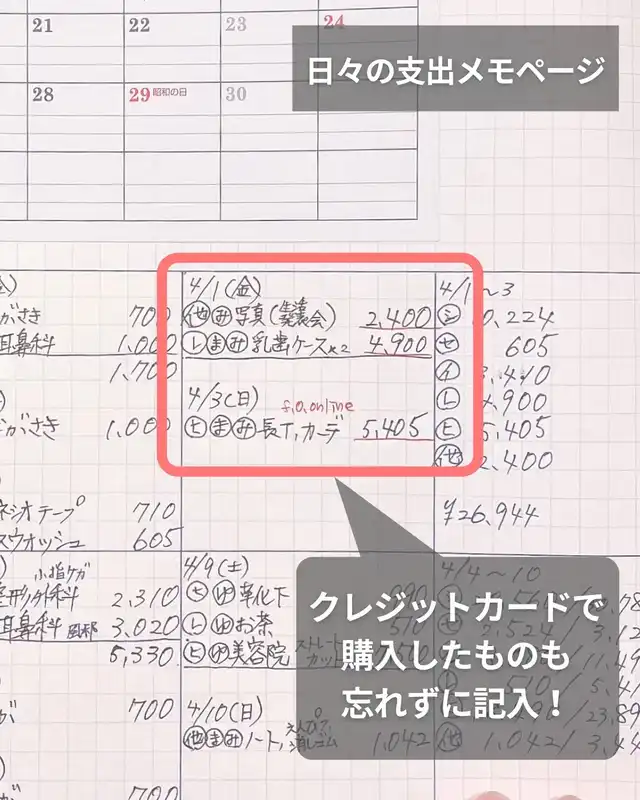 21 22 23 24
日々の支出メモページ
28 29 昭和の日 30
4/1(金)
がさき 700
他 み 写真(発表会) 2,400
耳鼻科 1,000
レ ま み 乳歯ケース×2 4,900
1,700
4/3(日)
f.o.online
がさき 1,000
ヒ ま み 長T,カーデ 5,405
4/1〜3
0,224
セ 605
イ
レ 4,900
ヒ 5,405
他 2,400
¥26,944
ネシオテープ 710
スウォッシュ 605
小指ケガ
形外科 2,310
耳鼻科 風邪 3,020
5,330
700
700
4/9(土)
セ ゆ 革靴下
レ ゆ お茶
ヒ 美容院 ストレート カット
4/10(日)
他 ま み ノート, 消しゴム 1,042
4/4〜10
1,042/3,4
クレジットカードで
購入したものも
忘れずに記入!